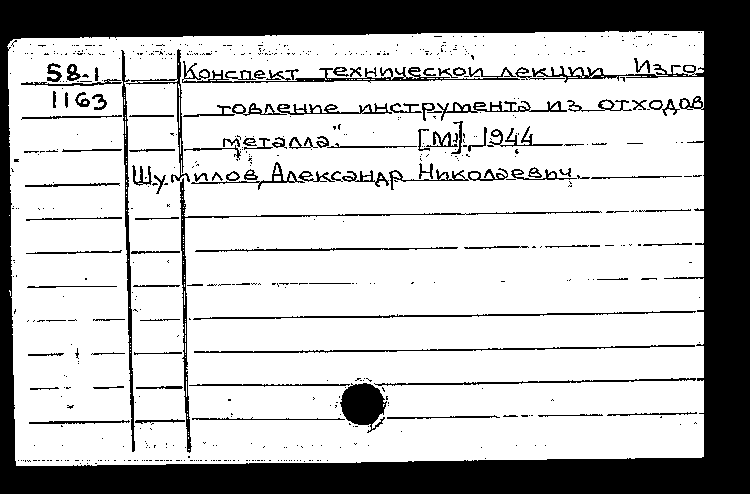 58-1
1163
Конспект технической лекции „Изго-
товление инструмента из отходов
металла." [М], 1944
Шумилов, Александр Николаевич.